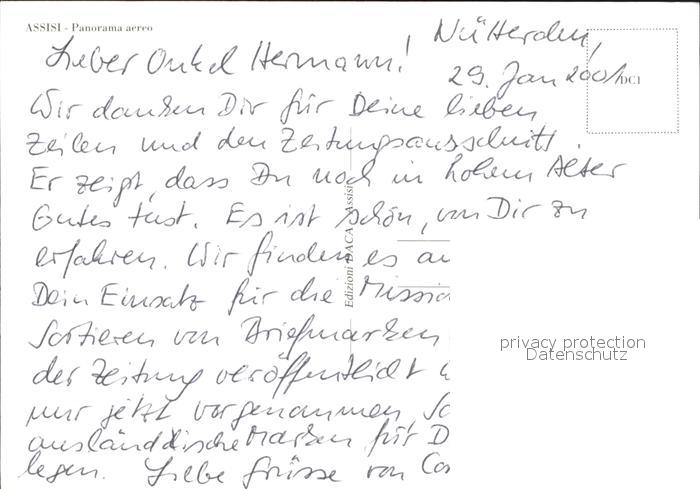 ASSISI - Panorama aereo
Nütterden,
Lieber Onkel Hermann!
29. Jan 2001
DCI
Wir danken Dir für Deine lieben
Zeilen und den Zeitungsausschnitt.
Er zeigt, dass Du noch in hohem Alter
Gutes tust. Es ist schön, von Dir zu
erfahren. Wir finden es
Dein Einsatz für die Missio
Sortieren von Briefmarken
der Zeitung veröffentlicht
mir jetzt vorgenommen,
ausländische Marken für D
legen. Liebe Grüsse von
Edizioni DACA - Assisi
privacy protection
Datenschutz